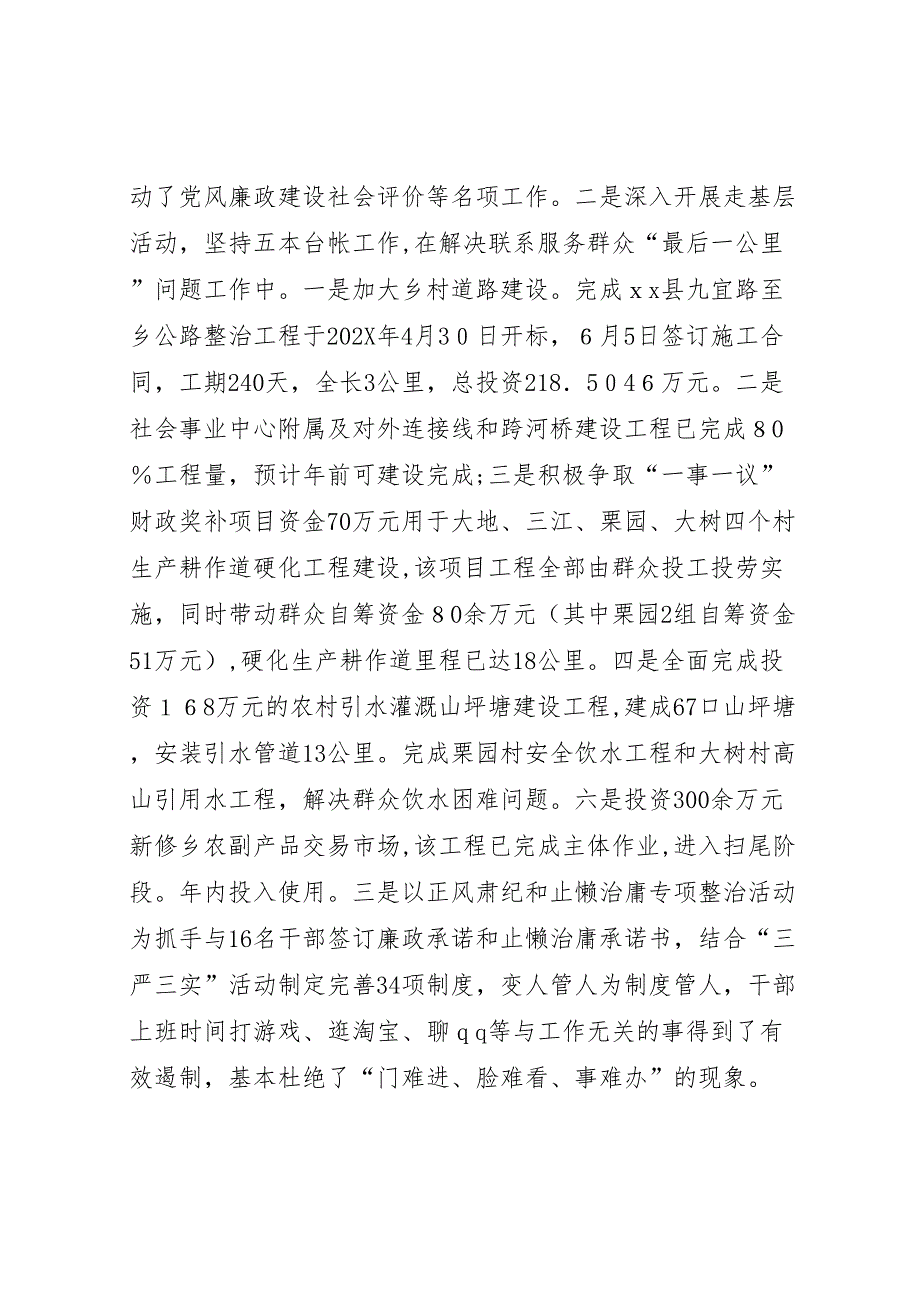 动了党风廉政建设社会评价等名项工作。二是深入开展走基层
活动，坚持五本台帐工作,在解决联系服务群众“最后一公里
”问题工作中。一是加大乡村道路建设。完成ｘx县九宜路至
乡公路整治工程于202X年4月3０日开标，６月5日签订施工合
同，工期240天，全长3公里，总投资218．5０4６万元。二是
社会事业中心附属及对外连接线和跨河桥建设工程已完成８0
％工程量，预计年前可建设完成;三是积极争取“一事一议”
财政奖补项目资金70万元用于大地、三江、栗园、大树四个村
生产耕作道硬化工程建设,该项目工程全部由群众投工投劳实
施，同时带动群众自筹资金８0余万元（其中栗园2组自筹资金
51万元）,硬化生产耕作道里程已达18公里。四是全面完成投
资１６8万元的农村引水灌溉山坪塘建设工程,建成67口山坪塘
，安装引水管道13公里。完成栗园村安全饮水工程和大树村高
山引用水工程，解决群众饮水困难问题。六是投资300余万元
新修乡农副产品交易市场,该工程已完成主体作业,进入扫尾阶
段。年内投入使用。三是以正风肃纪和止懒治庸专项整治活动
为抓手与16名干部签订廉政承诺和止懒治庸承诺书，结合“三
严三实”活动制定完善34项制度，变人管人为制度管人，干部
上班时间打游戏、逛淘宝、聊ｑq等与工作无关的事得到了有
效遏制，基本杜绝了“门难进、脸难看、事难办”的现象。